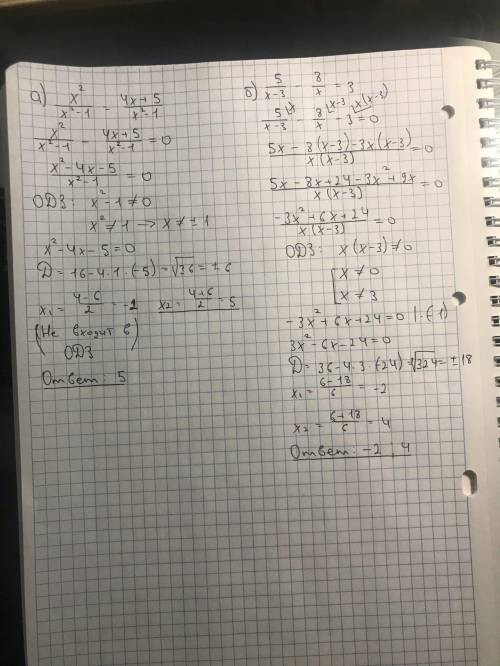 а) x²/(x²-1) - (4x+5)/(x²-1)
x²/(x²-1) - (4x+5)/(x²-1) = 0
(x²-4x-5)/(x²-1) = 0
ОДЗ: x²-1≠0
x²≠1 → x≠±1
x²-4x-5=0
D=16-4·1·(-5)=√36=±6
x₁=(4-6)/2=-1 x₂=(4+6)/2=5
(Не входит в
ОДЗ)
Ответ: 5
б) 5/(x-3) - 8/x = 3
5/(x-3) - 8/x - 3 = 0
x x-3 x(x-3)
(5x-8(x-3)-3x(x-3))/(x(x-3)) = 0
(5x-8x+24-3x²+9x)/(x(x-3)) = 0
(-3x²+6x+24)/(x(x-3)) = 0
ОДЗ: x(x-3)≠0
[x≠0
[x≠3
-3x²+6x+24=0 |:(-1)
3x²-6x-24=0
D=36-4·3·(-24)=√324=±18
x₁=(6-18)/6=-2
x₂=(6+18)/6=4
Ответ: -2, 4